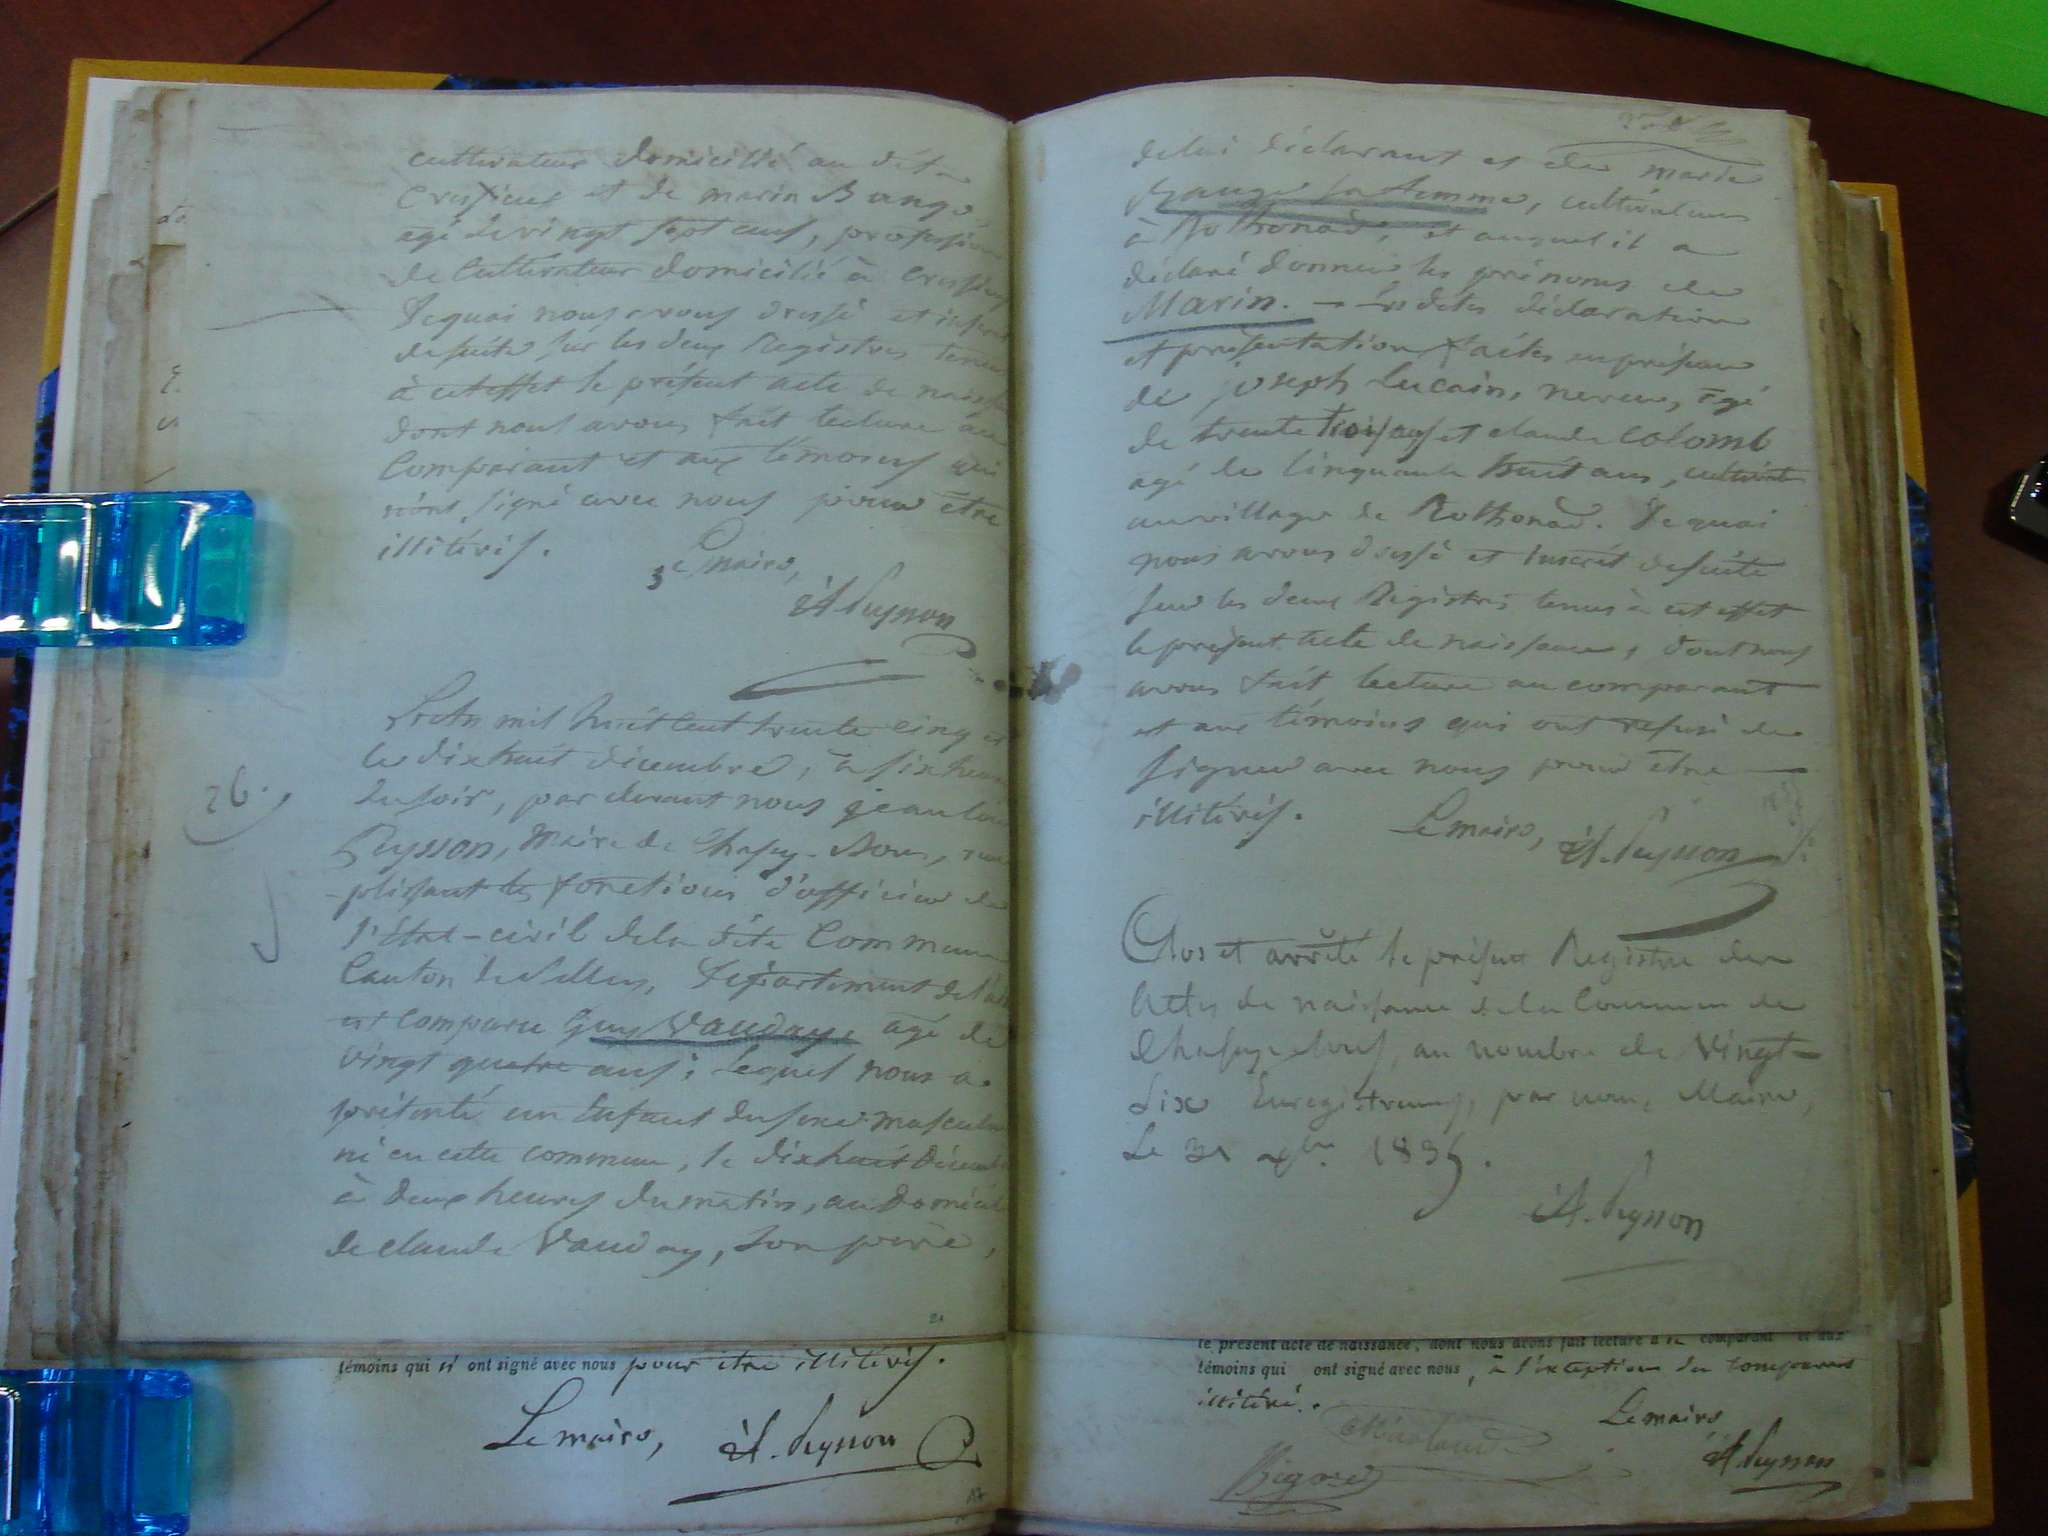 cultivateur domicilié au dit
et de marin Bange
agé de vingt sept ans, profession
de Cultivateur domicilié à
Dequoi nous avons dressé et
de suite sur les deux Registres tenus
à cet effet le présent acte de
dont nous avons fait lecture au
Comparant et aux témoins qui
n'ont signé avec nous pour être
illitérés.
Le maire,
Peysson
L'an mil huit cent trente cinq et
le dix huit décembre, à six heures
du soir, par devant nous
26.
Peysson, Maire de
-plissant les fonctions d'officier de
l'état-civil de la dite Commune
Canton de Département de
est comparu Guy Vauday agé de
vingt quatre ans; lequel nous a
présenté un Enfant du sexe
né en cette commune, le dix huit
à deux heures du matin, au
de claude Vauday, son père,
21
témoins qui n' ont signé avec nous pour être illitérés.
Le maire, A. Peysson
17
de lui déclarant et de marie
Bange sa femme, cultivateurs
à Rothonod, et auquel il a
déclaré donner les prénoms de
Marin. — Les dites déclaration
et présentation faites en présence
de joseph Lucain, neveu, agé
de trente trois ans et claude Colomb
agé de cinquante huit ans,
au village de Rothonod. De quoi
nous avons dressé et inscrit de suite
sur les deux Registres tenus à cet effet
le présent acte de naissance, dont nous
avons fait lecture au comparant
et aux témoins qui ont refusé de
signer avec nous pour être
illitérés.
Le maire, A. Peysson
Clos et arrêté le présent Registre des
Actes de naissance de la Commune de
au nombre de Vingt-
Six Enregistrements, par nous, Maire,
Le 31 Xbre 1835.
A. Peysson
le présent acte de naissance, dont nous avons fait lecture a comparant et aux
témoins qui ont signé avec nous, à l'exception du comparant
illitéré.
Le maire,
A Peysson